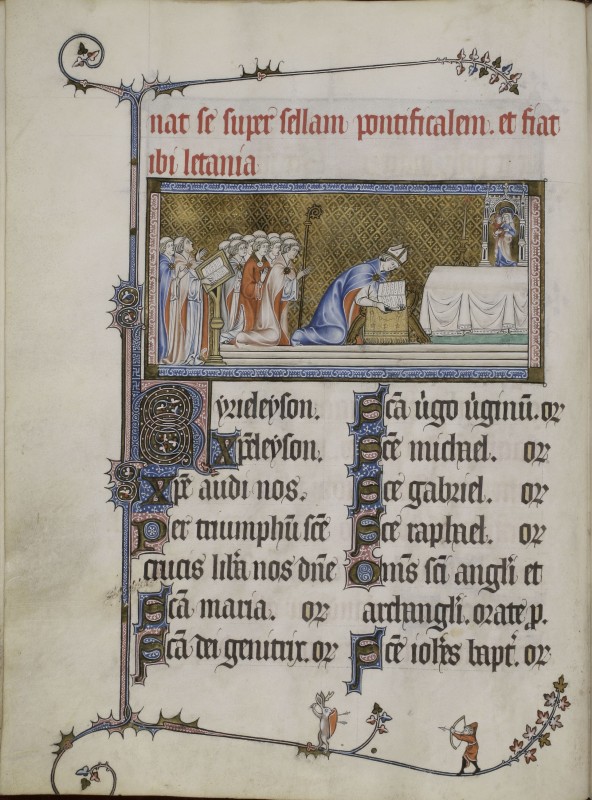 nat se super sellam pontificalem. et fiat
ibi letania
Kyrieleyson.
Xp̃eleyson.
Xp̃e audi nos.
Per triumphū sc̃e
crucis lib̃a nos dñe
Sc̃a maria. or
Sc̃a dei genitrix. or
Sc̃a ũgo ũginũ. or
Sc̃e michael. or
Sc̃e gabriel. or
Sc̃e raphael. or
Om̃s sc̃i angl̃i et
archangl̃i. orate p.
Sc̃e ioh̃es bapt̃. or